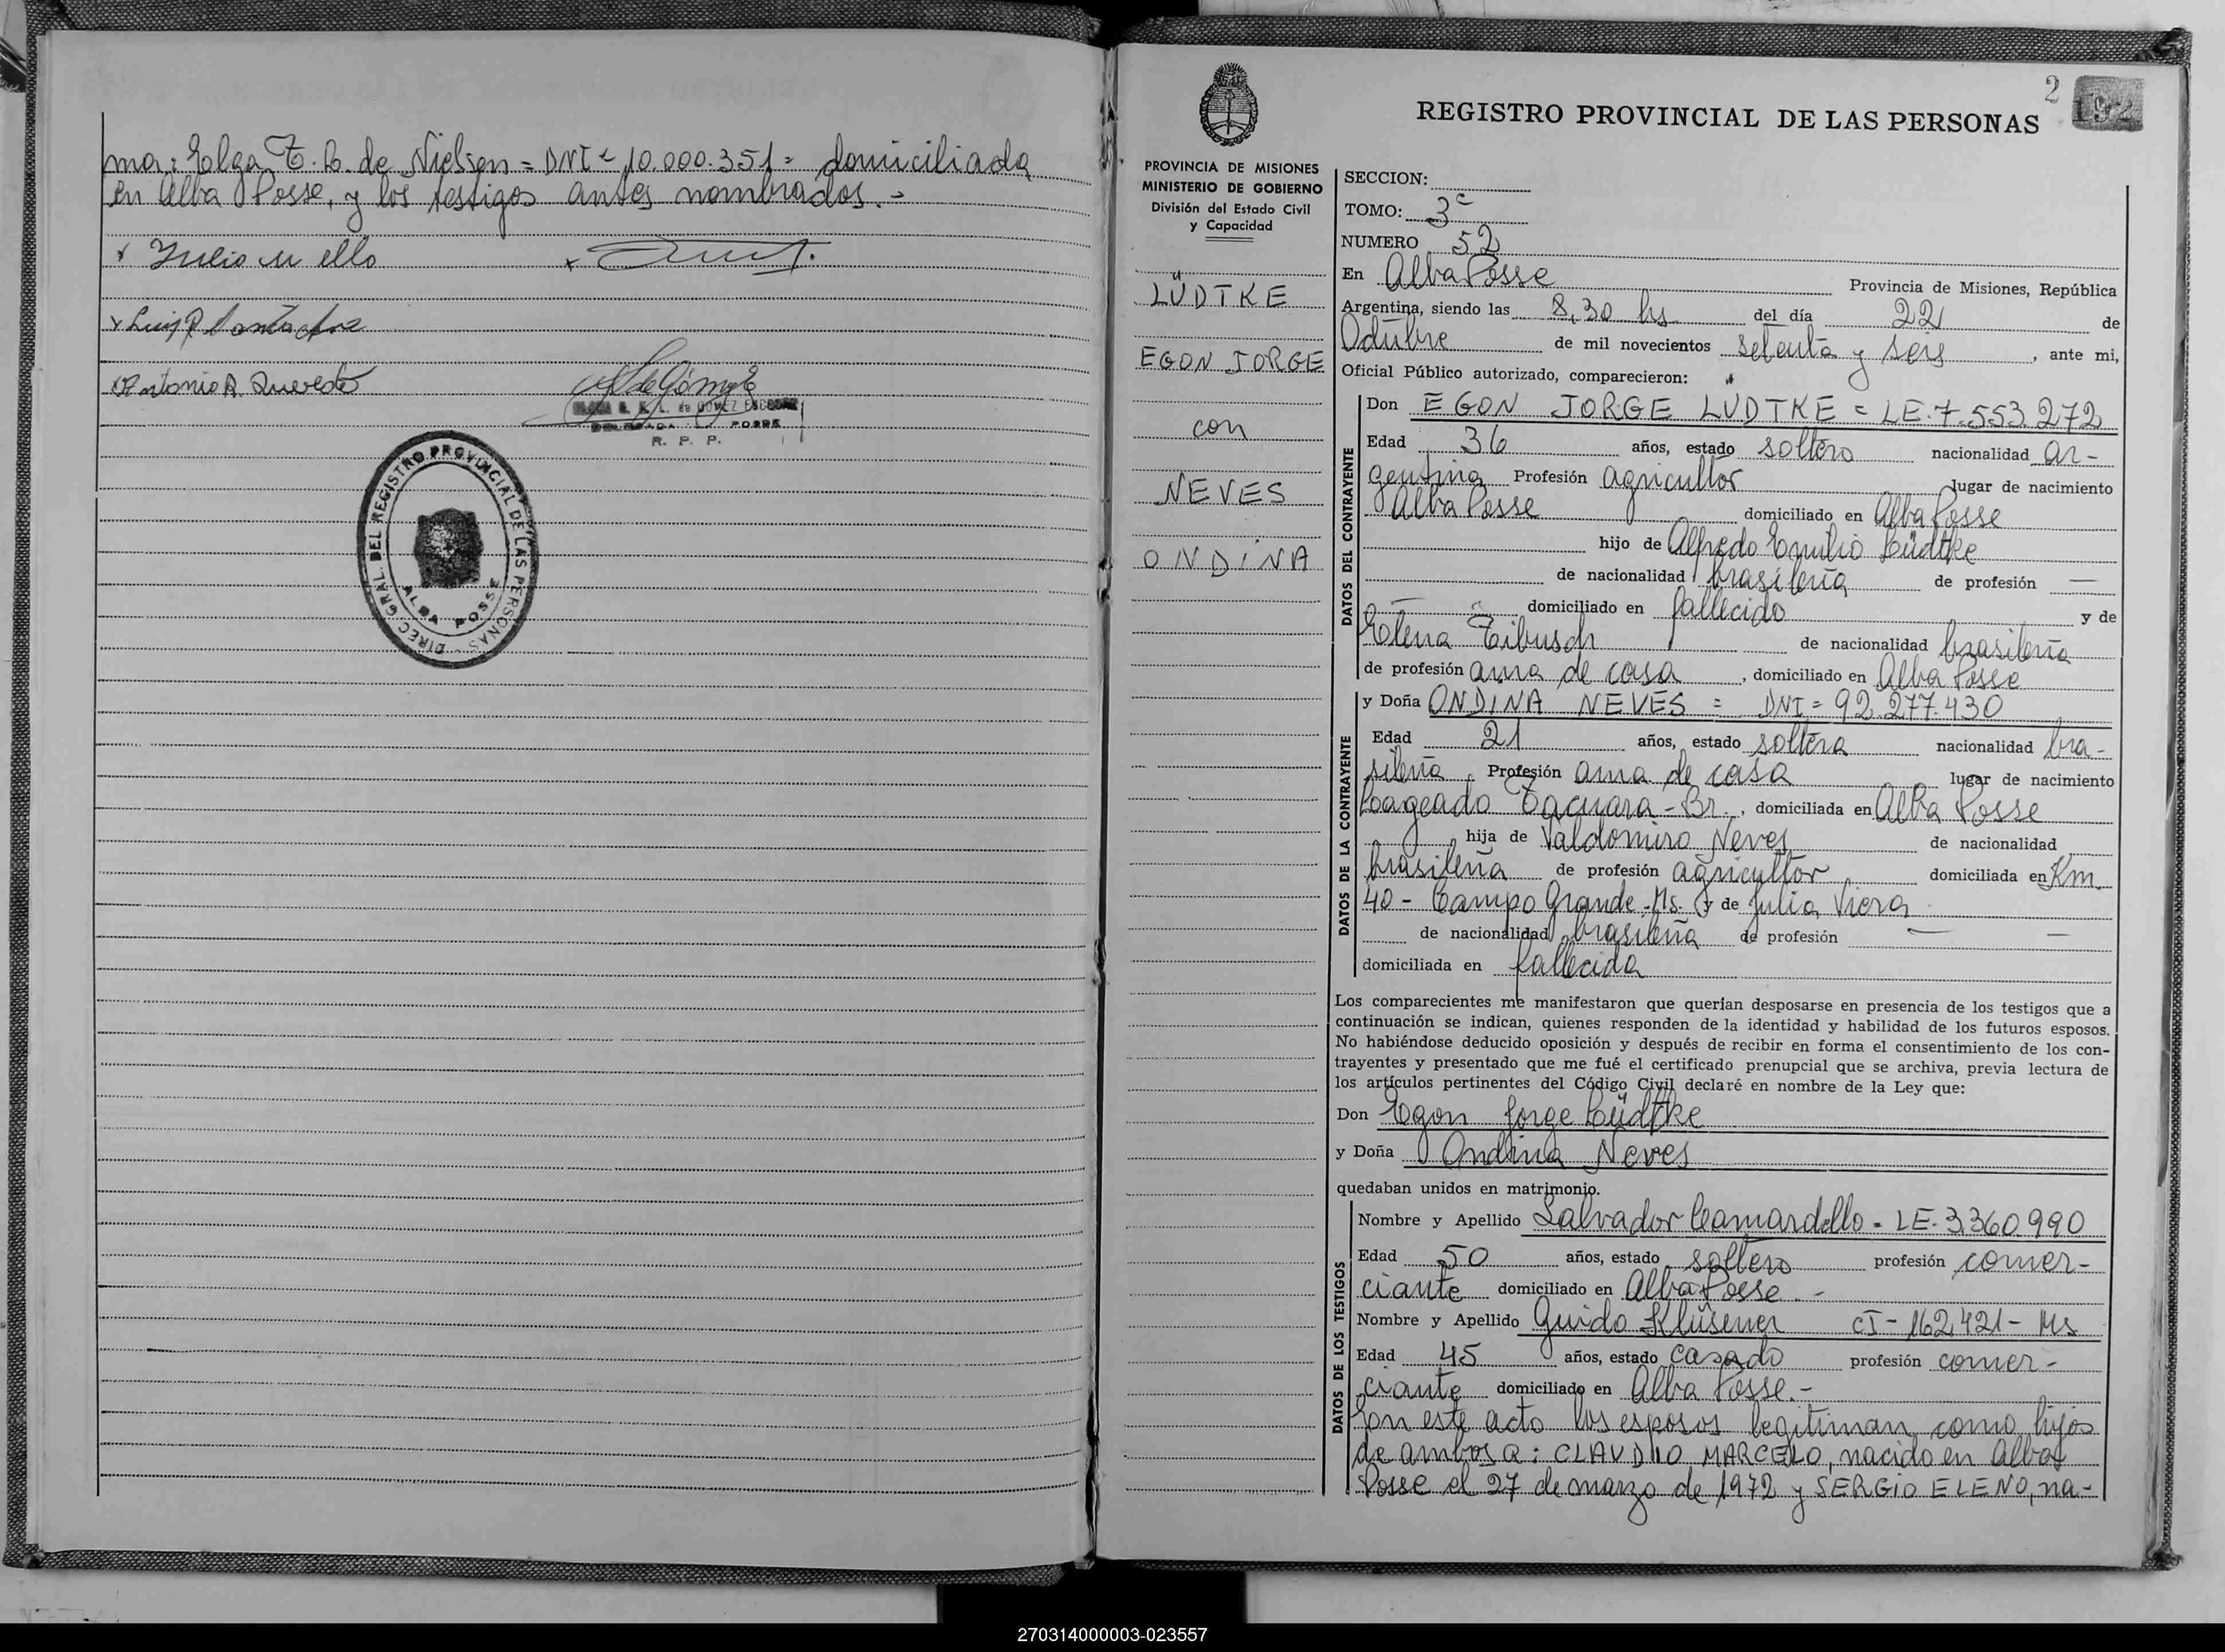 ma: Elga T. B. de Nielsen = DNI = 10.000.351 = domiciliada
en Alba Posse, y los testigos antes nombrados.-
x Julio M ello
x Luis
x Antonio R. Quevedo
de GOMEZ ESCOBAR
DELEGADA POSSE
R. P. P.
DIREC. GRAL. DEL REGISTRO PROVINCIAL DE LAS PERSONAS
ALBA POSSE
2
192
REGISTRO PROVINCIAL DE LAS PERSONAS
PROVINCIA DE MISIONES
MINISTERIO DE GOBIERNO
División del Estado Civil
y Capacidad
LÜDTKE
EGON JORGE
con
NEVES
ONDINA
SECCION:
TOMO: 3º
NUMERO 52
En Alba Posse Provincia de Misiones, República
Argentina, siendo las 8,30 hs del día 22 de
Octubre de mil novecientos setenta y seis, ante mi,
Oficial Público autorizado, comparecieron:
DATOS DEL CONTRAYENTE
Don EGON JORGE LUDTKE = LE.7.553.272
Edad 36 años, estado soltero nacionalidad ar-
gentina Profesión agricultor lugar de nacimiento
Alba Posse domiciliado en Alba Posse
hijo de Alfredo Emilio Lüdtke
de nacionalidad brasileña de profesión —
— domiciliado en fallecido y de
Elena Tibusch de nacionalidad brasileña
de profesión ama de casa, domiciliado en Alba Posse
DATOS DE LA CONTRAYENTE
y Doña ONDINA NEVES = DNI = 92.277.430
Edad 21 años, estado soltera nacionalidad bra-
sileña Profesión ama de casa lugar de nacimiento
Lageado Tacuara - Br., domiciliada en Alba Posse
hija de Valdomiro Neves de nacionalidad
brasileña de profesión agricultor domiciliada en Km.
40 - Campo Grande - Ms. y de Julia Viera
de nacionalidad brasileña de profesión — —
domiciliada en fallecida
Los comparecientes me manifestaron que querían desposarse en presencia de los testigos que a
continuación se indican, quienes responden de la identidad y habilidad de los futuros esposos.
No habiéndose deducido oposición y después de recibir en forma el consentimiento de los con-
trayentes y presentado que me fué el certificado prenupcial que se archiva, previa lectura de
los artículos pertinentes del Código Civil declaré en nombre de la Ley que:
Don Egon Jorge Lüdtke
y Doña Ondina Neves
quedaban unidos en matrimonio.
DATOS DE LOS TESTIGOS
Nombre y Apellido Salvador Camardello - LE. 3.360.990
Edad 50 años, estado soltero profesión comer-
ciante domiciliado en Alba Posse.-
Nombre y Apellido Guido Klüsener CI - 162.421 - Ms
Edad 45 años, estado casado profesión comer-
ciante domiciliado en Alba Posse.-
Con este acto los esposos legitiman como hijos
de ambos a: CLAUDIO MARCELO, nacido en Alba
Posse el 27 de marzo de 1972 y SERGIO ELENO, na-
270314000003-023557